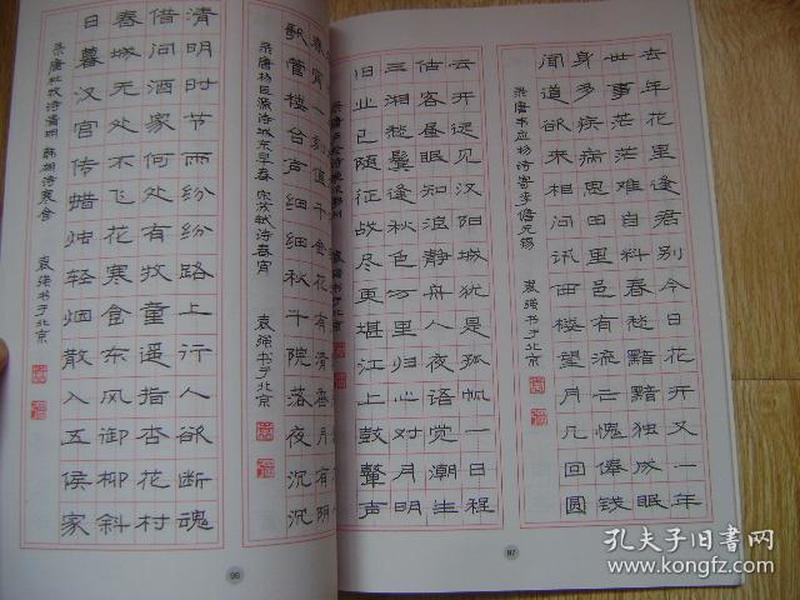 去年花里逢君别今日花开又一年
世事茫茫难自料春愁黯黯独成眠
身多疾病思田里邑有流亡愧俸钱
闻道欲来相问讯西楼望月几回圆
录唐韦应物诗寄李儋元锡 袁强书于北京
云开远见汉阳城犹是孤帆一日程
估客昼眠知浪静舟人夜语觉潮生
三湘愁鬓逢秋色万里归心对月明
旧业已随征战尽更堪江上鼓鼙声
录唐卢纶诗晚次鄂州 袁强书于北京
97
春宵一刻值千金花有清香月有阴
歌管楼台声细细秋千院落夜沉沉
录唐杨巨源诗城东早春 宋苏轼诗春宵 袁强书于北京
清明时节雨纷纷路上行人欲断魂
借问酒家何处有牧童遥指杏花村
春城无处不飞花寒食东风御柳斜
日暮汉宫传蜡烛轻烟散入五侯家
录唐杜牧诗清明 韩翃诗寒食 袁强书于北京
96
孔夫子旧书网
www.kongfz.com